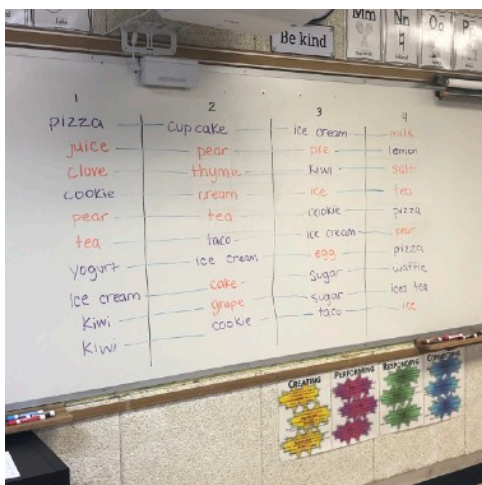 Be kind
Mm
Nn
Oo
P
1 2 3 4
pizza cupcake ice cream milk
juice pear pie lemon
clove thyme kiwi salt
cookie cream ice tea
pear tea cookie pizza
tea taco ice cream pear
yogurt ice cream egg pizza
Ice cream cake sugar waffle
Kiwi grape sugar iced tea
Kiwi cookie taco ice
CREATING
PERFORMING
RESPONDING
CONNECTING